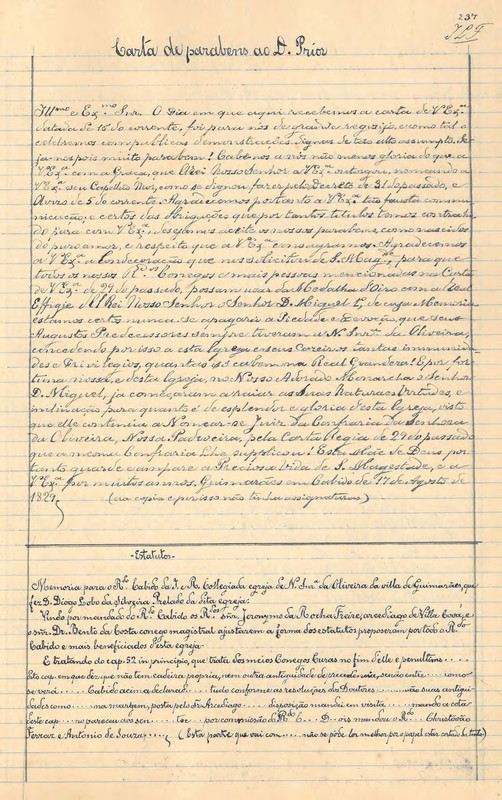 237
Carta de parabens ao D. Prior
Illmo e Exmo Snr. O dia em que aqui recebemos a carta de V Exa
datada de 15 do corrente, foi para nós de grande regosijo, e como tal o
celebremos com publicas demonstrações, dignas de tão alto assumpto. Se-
ja-nos pois muito parabem! Cabe-nos a nós não menos gloria do que a
V Exa com a Graça, que ElRei Nosso Senhor a V Exa outorgou, nomeando a
V Exa seu Capellão Mor, como se dignou fazer pelo Decreto de 31 do passado, e
Aviso de 5 do corrente. Agradecemos portanto a V Exa tão fausta commu-
nicação, e certos das obrigações que por tantos titulos temos contrahi-
do para com V Exa desejamos aceite os nossos parabens, como nascidos
do puro amor, e respeito que a V Exa consagramos. Agradecemos
a V Exa a Condecoração que nos solicitou de S. Magde, para que
todos os nossos Rdos Conegos e mais pessoas mencionadas na Carta
de V Exa de 29 do passado, possam usar da Medalha d'Oiro com a Real
Effigie d'ElRei Nosso Senhor o Senhor D. Miguel 1º, de cuja Memoria
estamos certos nunca se apagará a Piedade e Devoção, que seus
Augustos Predecessores sempre tiveram a N. Snra da Oliveira,
concedendo por isso a esta Igreja e seus Cazeiros tantas immunida-
des e Privilegios, quantos só cabem na Real Grandeza! E por for-
tuna nossa, e desta Igreja, no Nosso Adorado Monarcha o Senhor
D. Miguel, já começaram a raiar as Suas Naturaes Virtudes, e
inclinação para quanto é de esplendor e gloria desta Igreja, visto
que elle continua a Nomear-se Juiz da Confraria da Senhora
da Oliveira, Nossa Padroeira, pela Carta Regia de 29 do passado
que a mesma Confraria Lhe supplicou! Esta Mãe de Deus, por-
tanto guarde e ampare a Preciosa Vida de S. Magestade, e a
V Exa por muitos annos. Guimarães em Cabido de 17 de Agosto de
1829, (era copia e por isso não tinha assignaturas)
-Estatutos-
Memoria para o Rdo Cabido da I. e R. Collegiada egreja de N. Snra da Oliveira da villa de Guimarães, que
fez D. Diogo Lobo da Silveira Prelado da dita egreja:
Vindo por mandado do Rdo Cabido os Rdos snrs Jeronymo da Rocha Freire, arcediago de Villa Cova, e
o snr. Dr. Bento da Costa conego magistral ajustarem a forma dos estatutos proposeram por todo o Rdo
Cabido e mais beneficiados desta egreja
E tratando do cap. 52 in principio, que trata dos meios Conegos Curas no fim d'elle e penultimo.....
dito cap. em que diz que não tem cadeira propria, nem outra antiguidade de precedencia, senão entre.....como
se verá.....Cabido acima declarado.....tudo conforme as resoluções dos Doutores.....não suas antigui-
dades como.....na margem, posta pelo dr Arcediago.....disposição mandei em visita.....mando a cota
deste cap.....no pareceu aos sen.....tôe.....por commissão do Rdo C.....D.....ois mandou o Rdo.....Christovão
Ferraz e Antonio de Souza..... (Esta parte que vai com.....não se pôde ler melhor por o papel estar cortado do tinte)